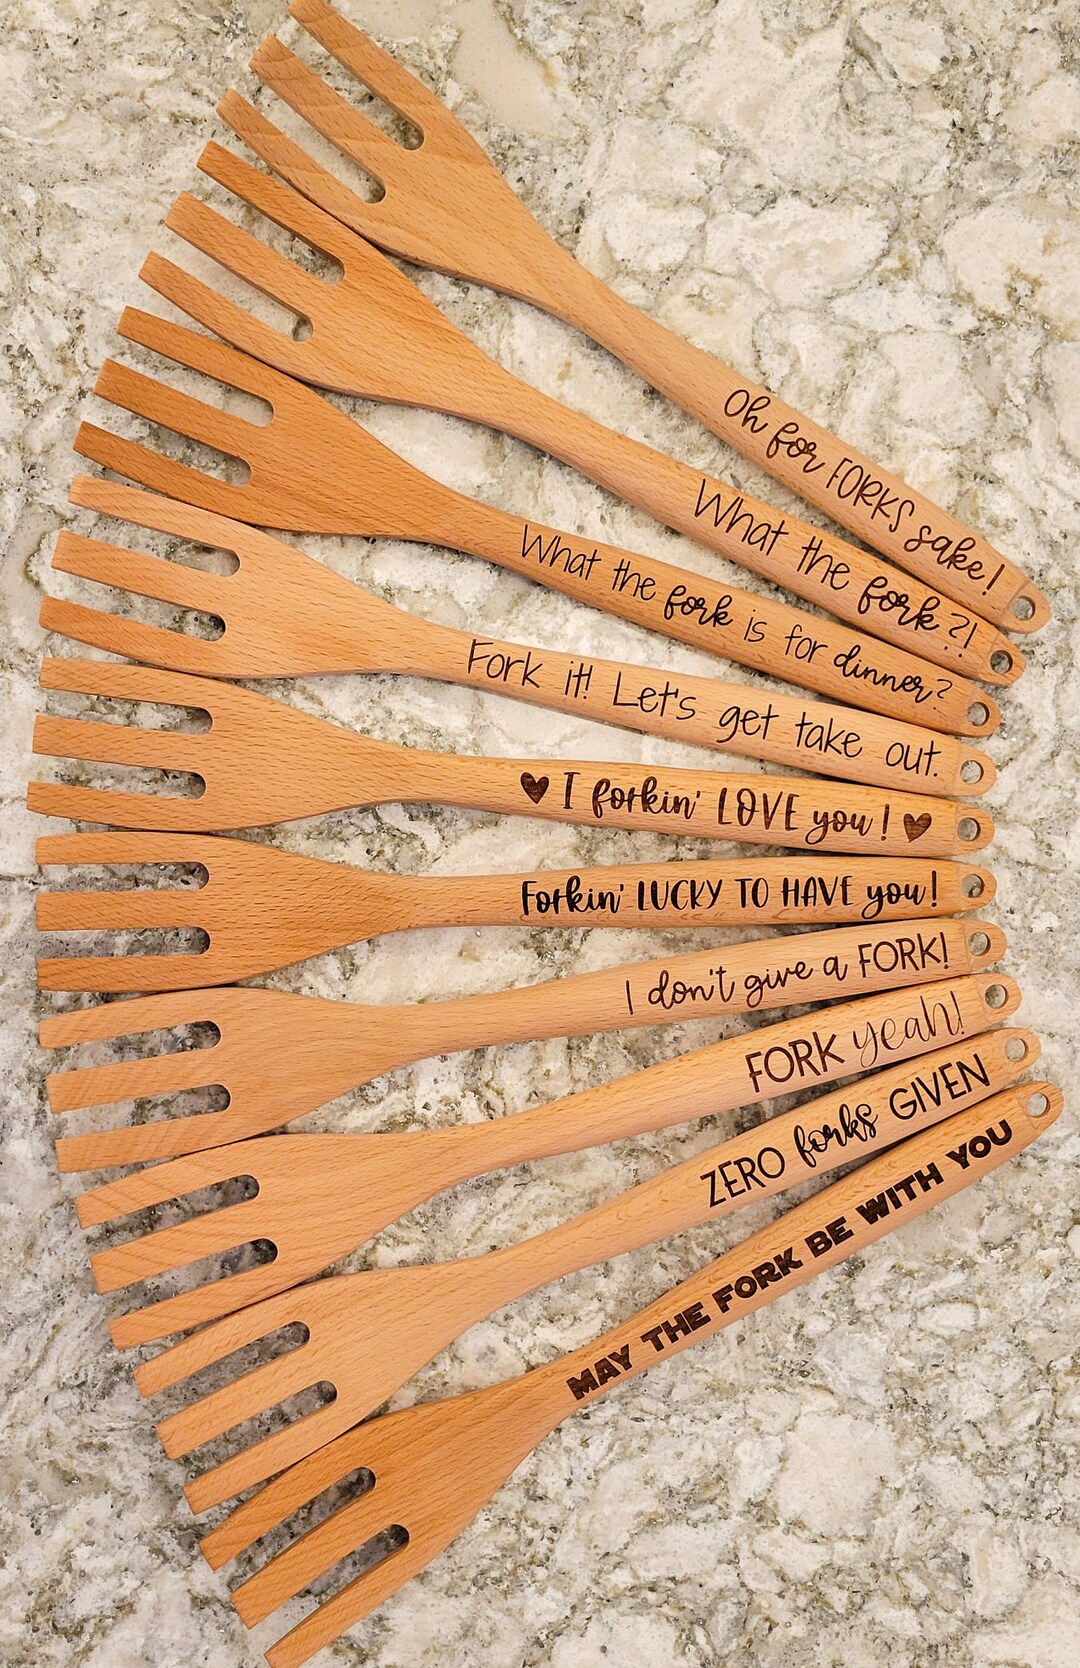 Oh for FORKS sake!
What the fork?!
What the fork is for dinner?
Fork it! Let's get take out.
♥ I forkin' LOVE you! ♥
Forkin' LUCKY TO HAVE you!
I don't give a FORK!
FORK yeah!
ZERO forks GIVEN
MAY THE FORK BE WITH YOU